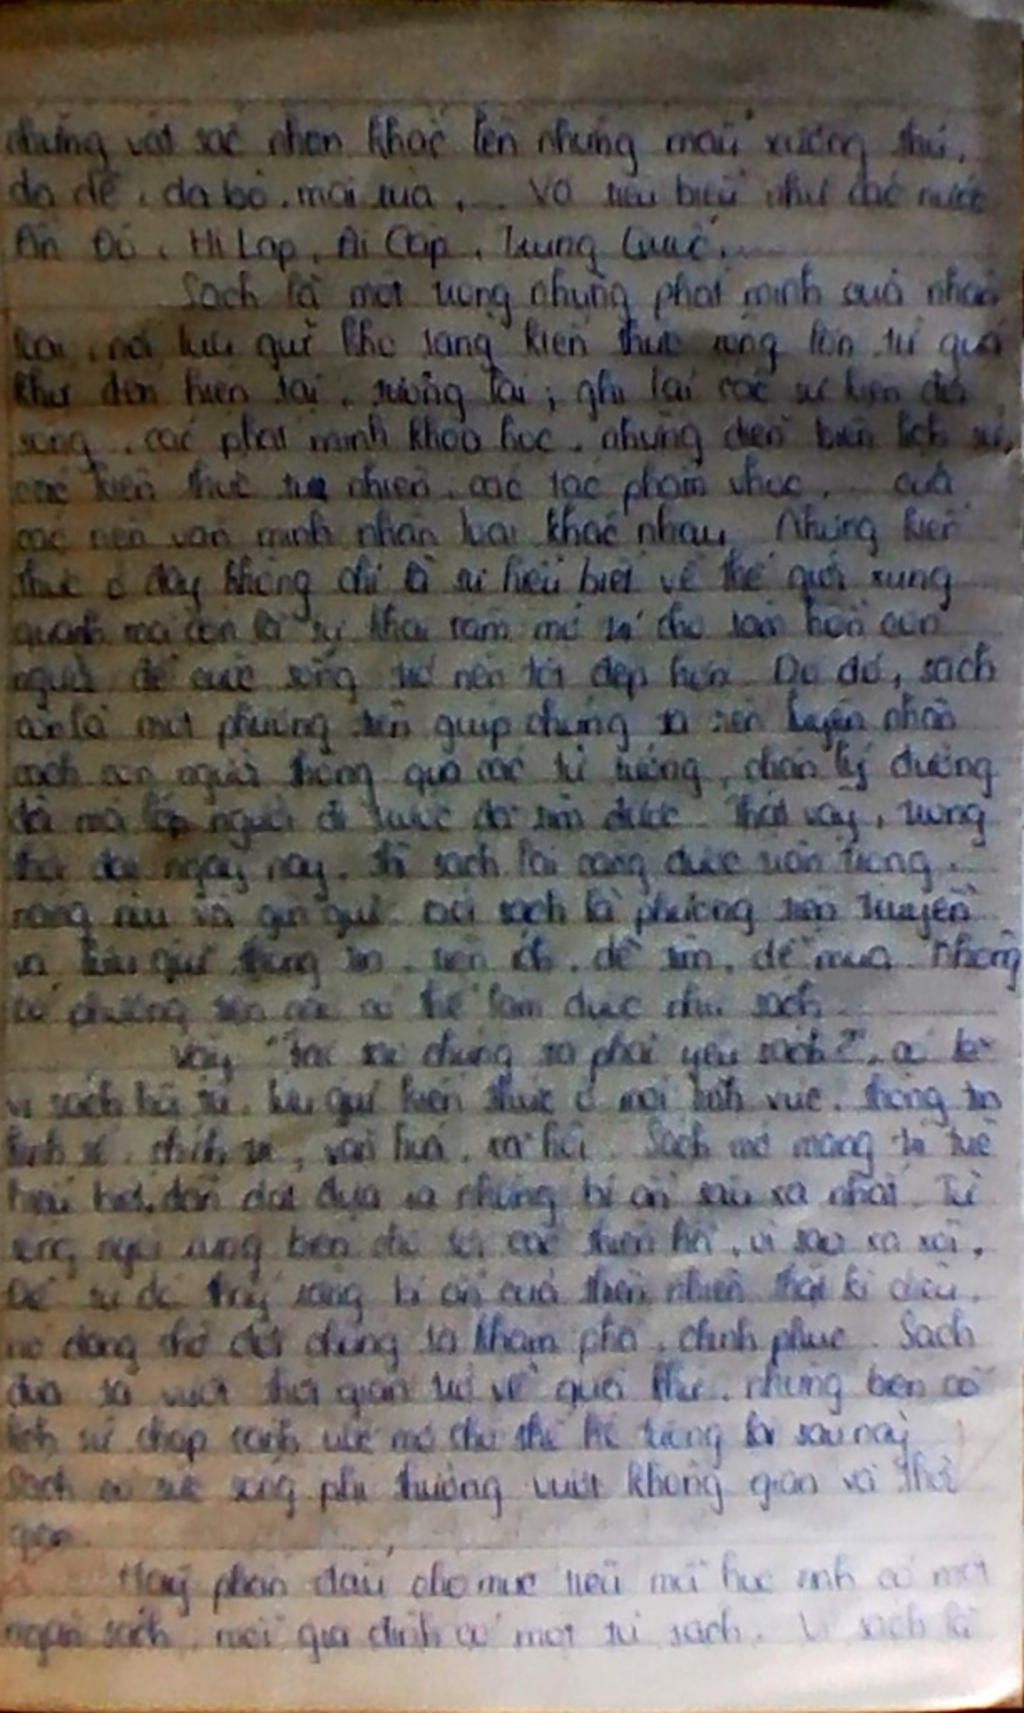 những vật sắc nhọn khắc lên những mẩu xương thú,
da dê, da bò, mai rùa, ... Và tiêu biểu như các nước
Ấn Độ, Hi Lạp, Ai Cập, Trung Quốc, ...
Sách là một trong những phát minh của nhân
loại, nơi lưu giữ kho tàng kiến thức rộng lớn từ quá
khứ đến hiện tại, tương lai; ghi lại các sự kiện đời
sống, các phát minh khoa học, những diễn biến lịch sử,
các kiến thức tự nhiên, các tác phẩm vhọc, ... của
các nền văn minh nhân loại khác nhau. Những kiến
thức ở đây không chỉ là sự hiểu biết về thế giới xung
quanh mà còn là sự khai tâm mở trí cho tâm hồn con
người để cuộc sống trở nên tốt đẹp hơn. Do đó, sách
còn là một phương tiện giúp chúng ta rèn luyện nhân
cách con người thông qua các tư tưởng, chân lý đường
đời mà lớp người đi trước đã tìm được. Thật vậy, trong
thời đại ngày nay, thì sách lại càng được trân trọng,
nâng niu và gìn giữ. Bởi sách là phương tiện truyền
và lưu giữ thông tin, tiện ích, dễ tìm, dễ mua. Không
có phương tiện nào có thể làm được như sách.
Vậy "Tại sao chúng ta phải yêu sách?", có lẽ
vì sách lưu trữ, lưu giữ kiến thức ở mọi lĩnh vực, thông tin
kinh tế, chính trị, văn hoá, xã hội. Sách mở mang trí tuệ
hiểu biết, dẫn dắt đưa ra những bí ẩn sâu xa nhất. Từ
trong ngôi rừng biển cho tới các thiên hà, vì sao xa xôi.
Để từ đó thấy rằng bí ẩn của thiên nhiên thật kì diệu,
nó đang chờ đợi chúng ta khám phá, chinh phục. Sách
đưa ta vượt thời gian trở về quá khứ, những bến cố
lịch sử chắp cánh ước mơ cho thế hệ tương lai sau này.
Sách có sức sống phi thường vượt không gian và thời
gian.
Hãy phấn đấu cho mục tiêu mỗi học sinh có một
ngăn sách, mỗi gia đình có một tủ sách. Vì sách là